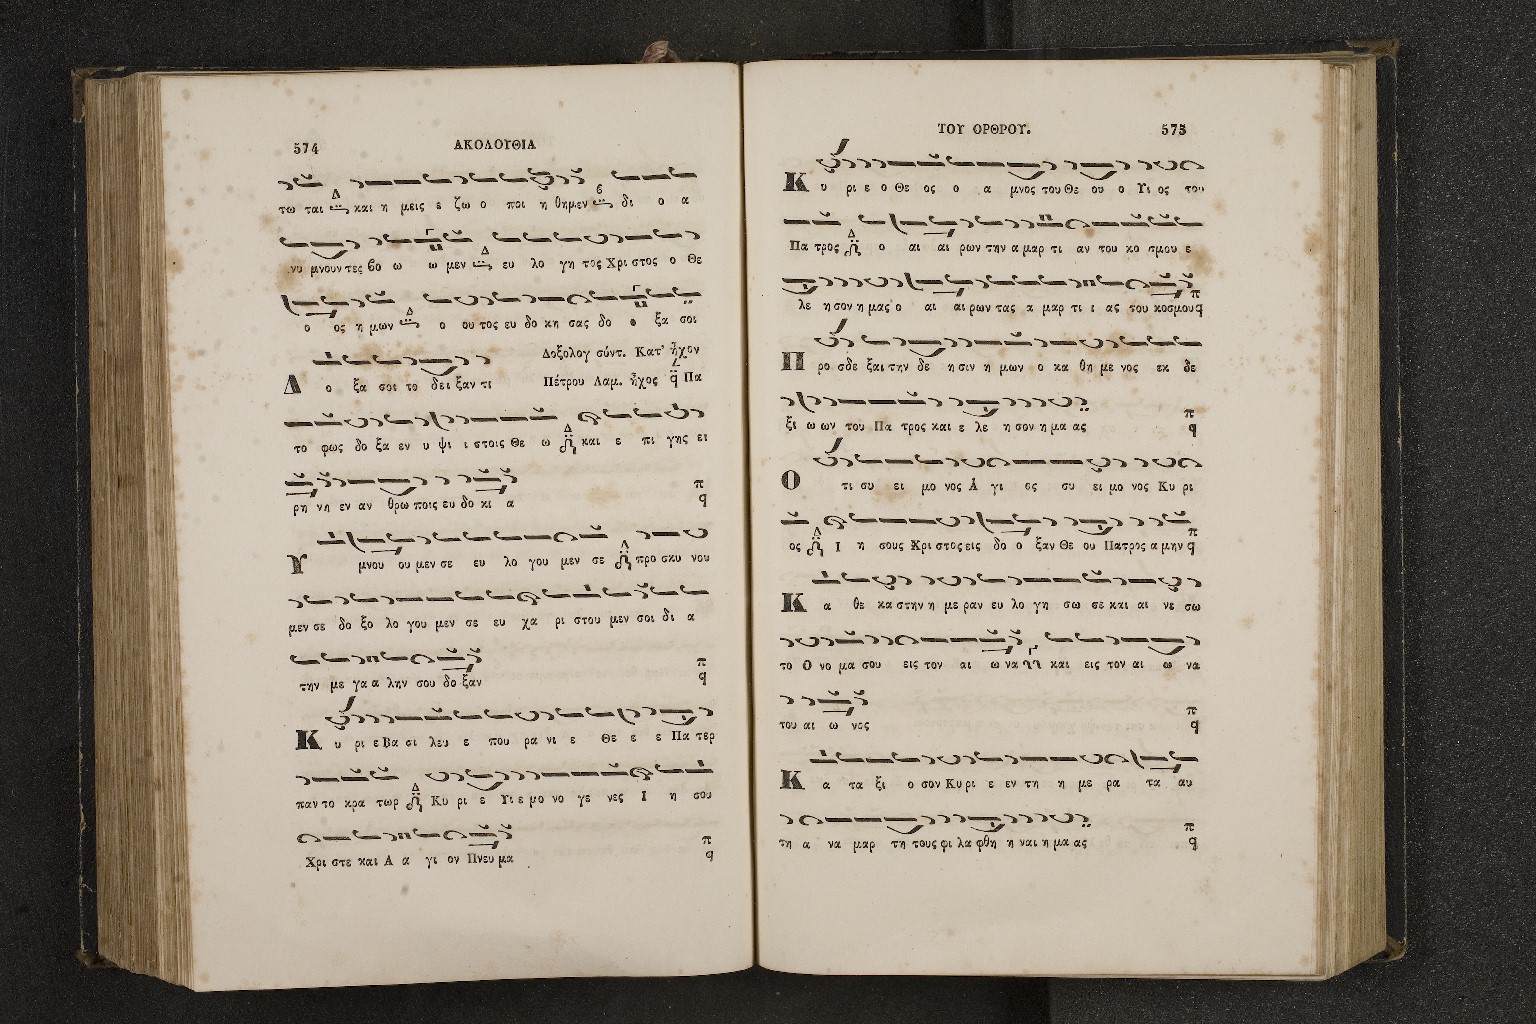 574
ΑΚΟΛΟΥΘΙΑ
τω ται και η μεις ε ζω ο ποι η θημεν δι ο α
νυ μνουν τες βο ω ω μεν ευ λο γη τος Χρι στος ο Θε
ο ος η μων ο ου τος ευ δο κη σας δο ο ξα σοι
Δοξολογ σύντ. Κατ' ἦχον
Δ ο ξα σοι το δει ξαν τι
Πέτρου Λαμ. ἦχος q Πα
το φως δο ξα εν υ ψι ι στοις Θε ω και ε πι γης ει
ρη νη εν αν θρω ποις ευ δο κι α
Υ μνου ου μεν σε ευ λο γου μεν σε προ σκυ νου
μεν σε δο ξο λο γου μεν σε ευ χα ρι στου μεν σοι δι α
την με γα α λην σου δο ξαν
Κ υ ρι ε Βα σι λευ ε που ρα νι ε Θε ε ε Πα τερ
παν το κρα τωρ Κυ ρι ε Υι ε μο νο γε νες Ι η σου
Χρι στε και Α α γι ον Πνευ μα
ΤΟΥ ΟΡΘΡΟΥ.
575
Κ υ ρι ε ο Θε ος ο α μνος του Θε ου ο Υι ος του
Πα τρος ο αι αι ρων την α μαρ τι αν του κο σμου ε
λε η σον η μας ο αι αι ρων τας α μαρ τι ι ας του κοσμου
Π ρο σδε ξαι την δε η σιν η μων ο κα θη με νος εκ δε
ξι ω ων του Πα τρος και ε λε η σον η μα ας
Ο τι συ ει μο νος Ἁ γι ος συ ει μο νος Κυ ρι
ος Ι η σους Χρι στος εις δο ο ξαν Θε ου Πατρος α μην
Κ α θε κα στην η με ραν ευ λο γη σω σε και αι νε σω
το Ο νο μα σου εις τον αι ω να και εις τον αι ω να
του αι ω νος
Κ α τα ξι ο σον Κυ ρι ε εν τη η με ρα τα αυ
τη α να μαρ τη τους φι λα φθη η ναι η μα ας